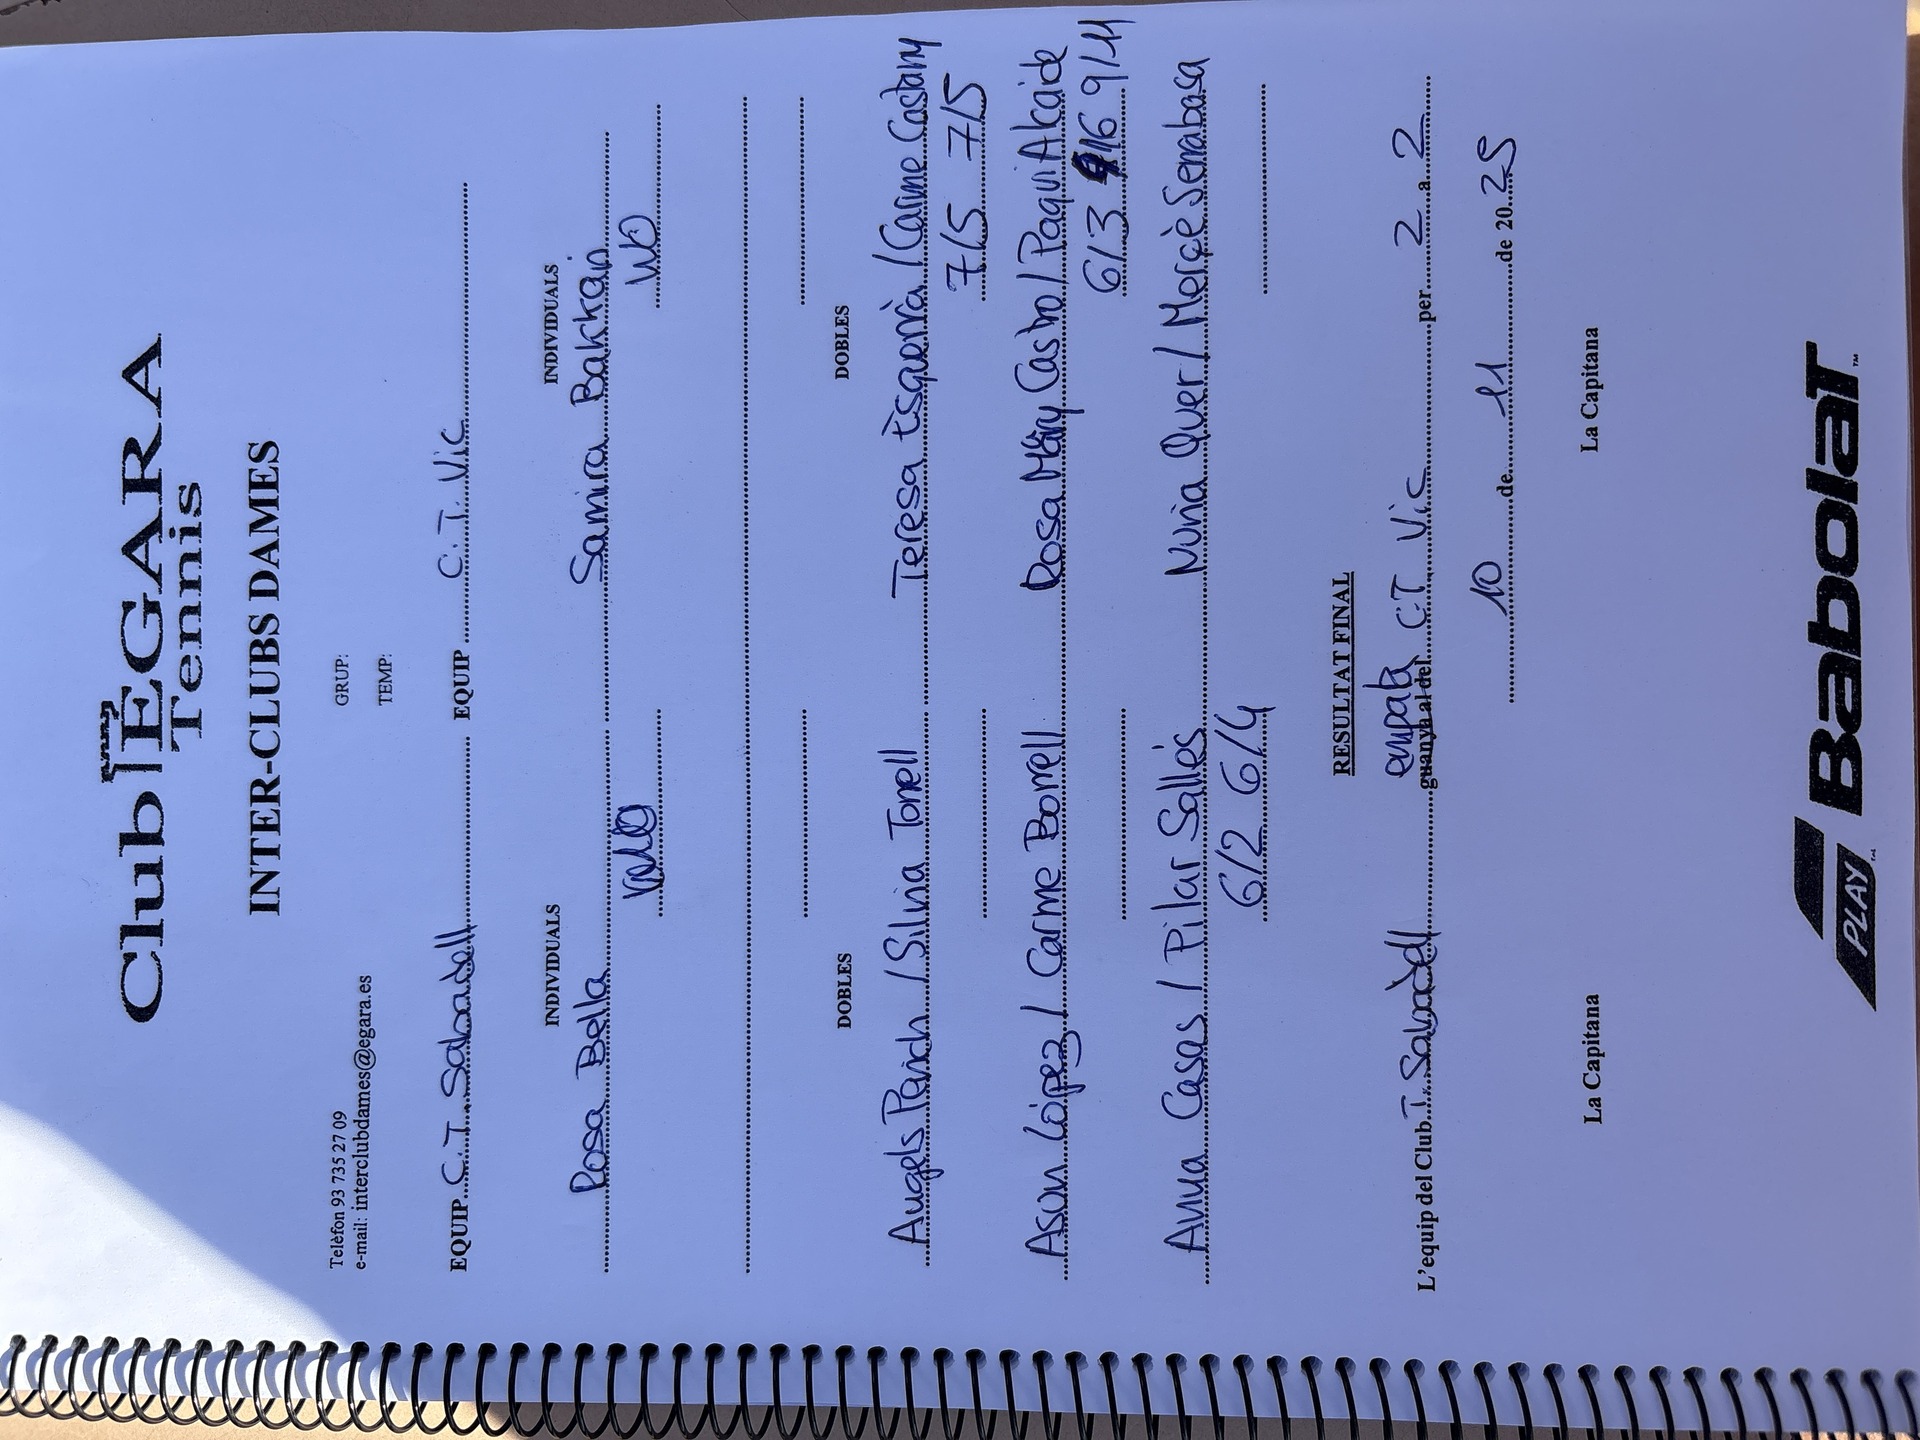 Club EGARA
Tennis
INTER-CLUBS DAMES
Telèfon 93 735 27 09 GRUP:
e-mail: interclubdames@egara.es TEMP:
EQUIP C.T. Sabadell EQUIP C.T. Vic
INDIVIDUALS INDIVIDUALS
Rosa Bella Samira Bakkan
WO
DOBLES DOBLES
Angels Parich / Silvia Torrell Teresa Esquerrà / Carme Castany
7/5 7/5
Asun López / Carme Borrell Rosa Mary Castro / Paqui Alcaide
6/3 4/6 9/11
Anna Casas / Pilar Sallés Núria Quer / Mercè Serrabasa
6/2 6/4
RESULTAT FINAL
empata
L'equip del Club T. Sabadell guanya al del C.T Vic per 2 a 2
10 de 11 de 2025
La Capitana La Capitana
PLAY Babolat